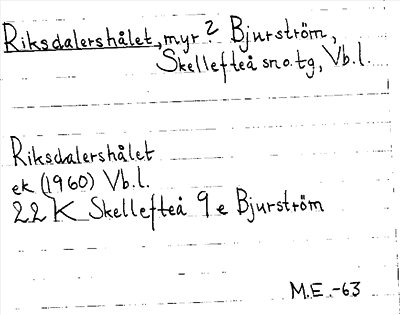 Riksdalershålet, myr 2 Bjurström,
Skellefteå sn o. tg, Vb.l.
Riksdalershålet
ek (1960) Vb.l.
22 K Skellefteå 9 e Bjurström
M.E.-63